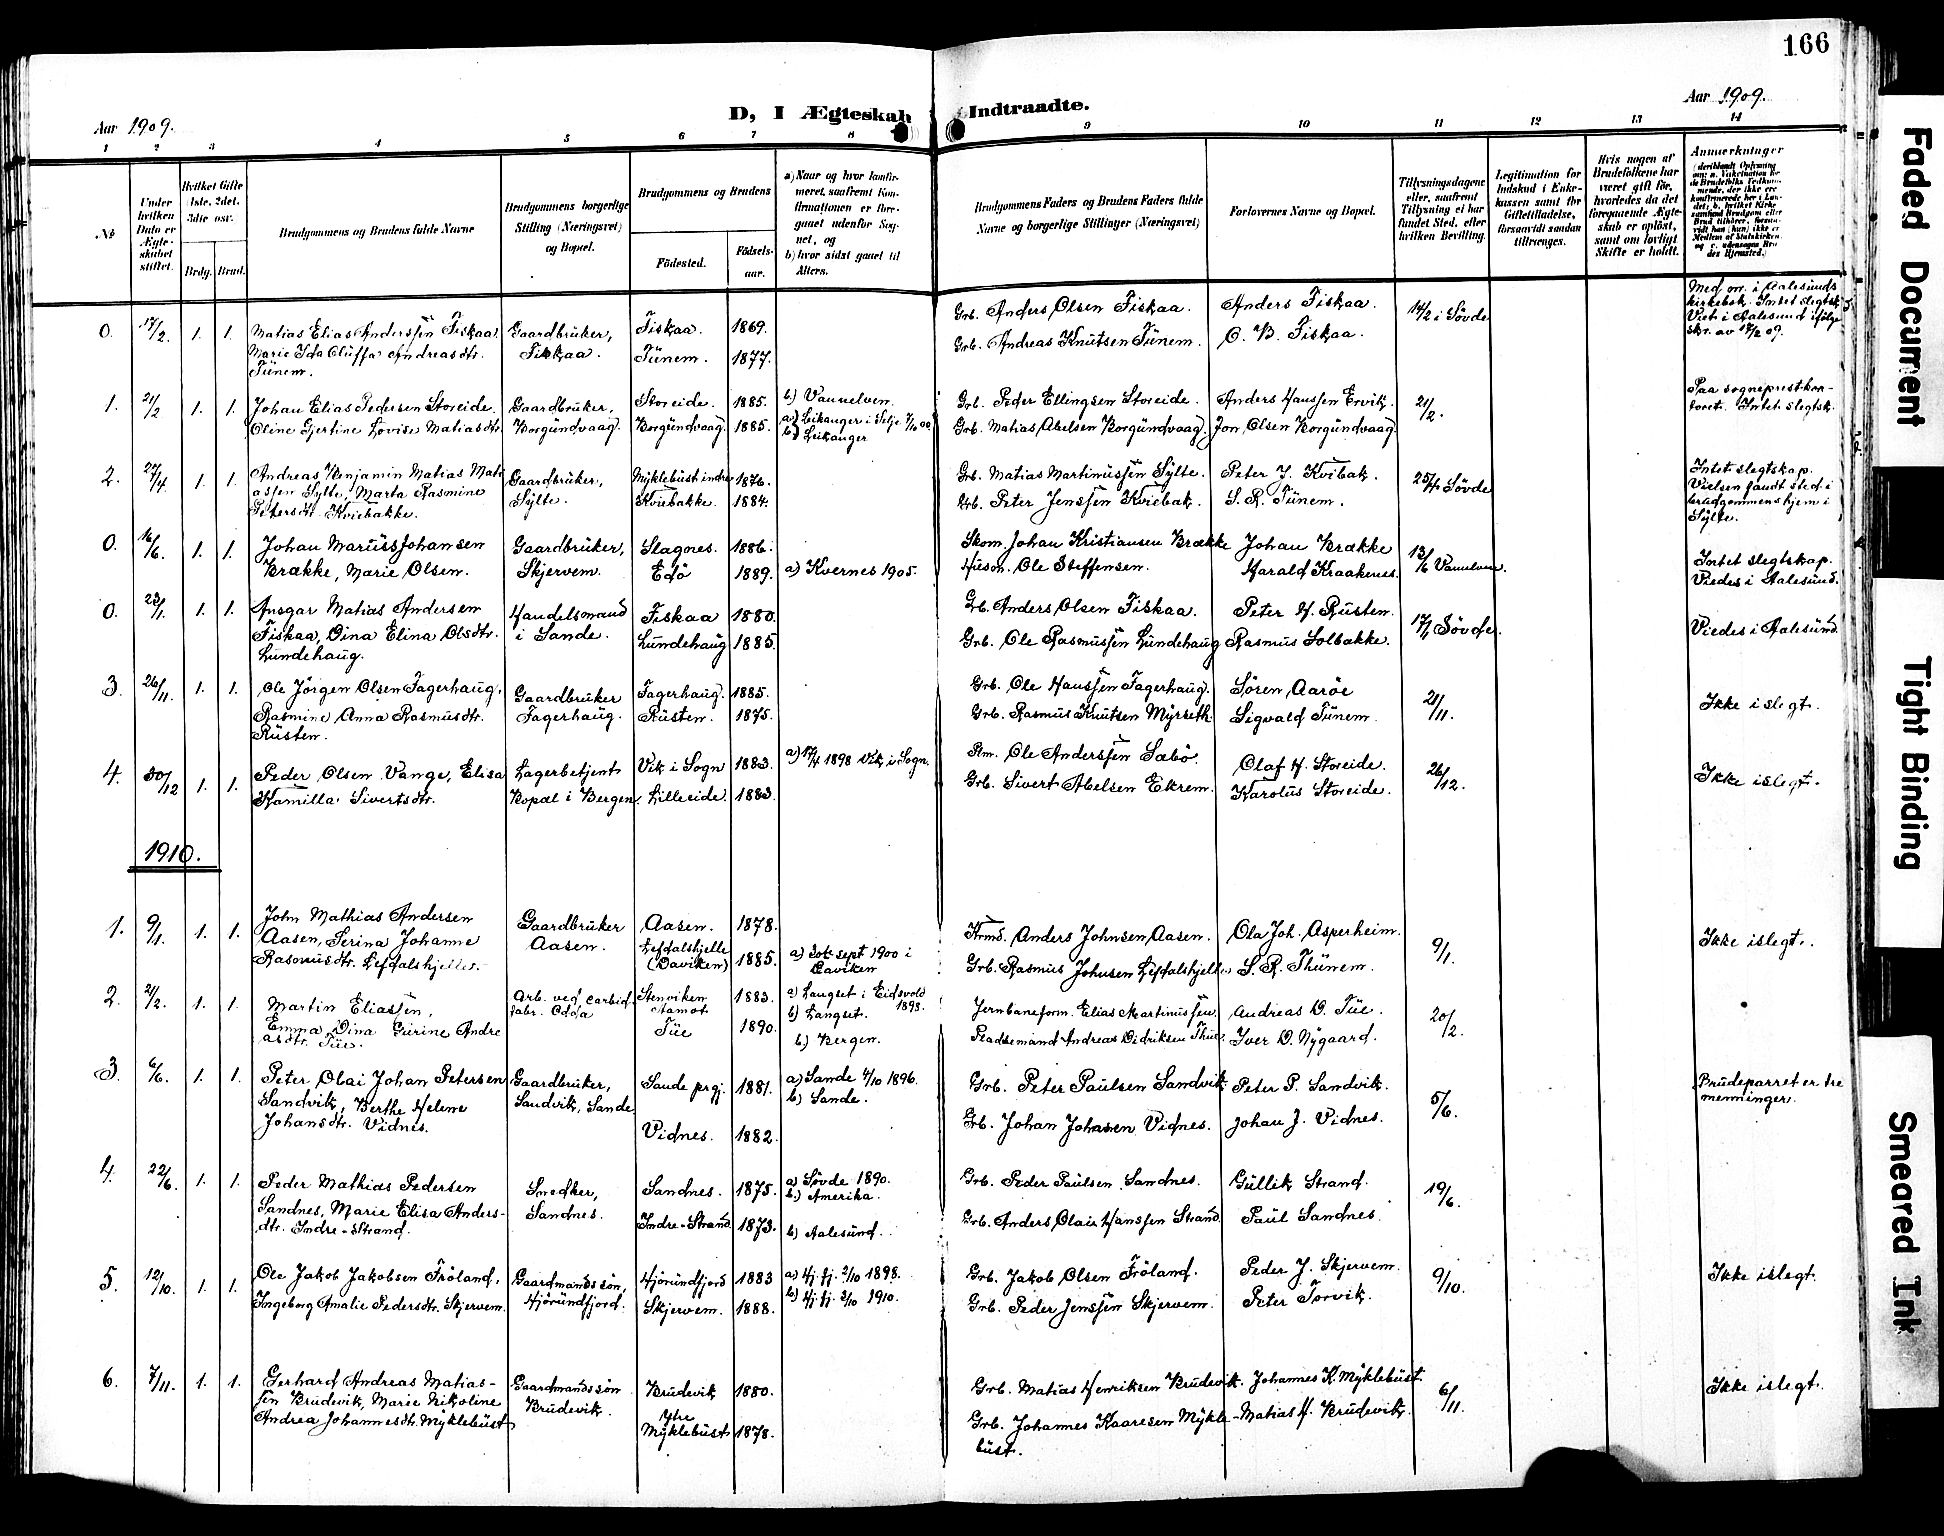 166
Aar 1909.
D, I Ægteskab Indtraadte.
Aar 1909.
1 2 3 4 5 6 7 8 9 10 11 12 13 14
No
Under hvilken Dato er Ægteskabet stiftet.
Hvilket Gifte (1ste, 2det, 3die osv.
Brdg. Brud.
Brudgommens og Brudens fulde Navne
Brudgommens borgerlige Stilling (Næringsvei) og Bopæl.
Brudgommens og Brudens
Födested.
Födselsaar.
a) Naar og hvor konfirmeret, saafremt Konfirmationen er foregaaet udenfor Sognet, og
b) hvor sidst gaaet til Alters.
Brudgommens Faders og Brudens Faders fulde Navne og borgerlige Stillinger (Næringsvei)
Forlovernes Navne og Bopæl.
Tillysningsdagene eller, saafremt Tillysning ei har fundet Sted, efter hvilken Bevilling.
Legitimation for Indskud i Enkekassen samt for Giftetilladelse, forsaavidt saadan tiltrænges.
Hvis nogen af Brudefolkene har været gift før, hvorledes da det foregaaende Ægteskab er opløst, samt om lovligt Skifte er holdt.
Anmærkninger
0. 17/2. 1. 1. Matias Elias Anderssen Fiskaa. Gaardbruker, Fiskaa. 1869. Grb. Anders Olsen Fiskaa. Anders Fiskaa. 14/2 i Søvde Med om. i Aalesunds kirkebok. Intet slegtsk.
Marie Ida Oluffa Andreasdtr. Fiskaa. Tünem. 1877. Grb. Andreas Knutsen Tünem. O. B. Fiskaa. Viet i Aalesund ifølge
Tünem. skr. av 17/2 09.
1. 21/2 1. 1. Johan Elias Pedersen Storeide. Gaardbruker, Storeide. 1885. b) Vannelven. Grb. Peder Ellingsen Storeide. Anders Hanssen Ervik. 21/2. Paa sogneprestkon-
Oline Gjertine Lovise Matiasdtr. Borgundvaag. Borgundvaag. 1885. a) Leikanger i Selje 7/10 00 b) Leikanger Grb. Matias Abelsen Borgundvaag. Jon Olsen Borgundvaag. toret. Intet slegtsk.
2. 27/4 1. 1. Andreas Benjamin Matias Mati Gaardbruker, Myklebust indre 1876. Grb. Matias Martinussen Sylte. Peter J. Kvibak. 25/4 Søvde Intet slegtskap.
assen Sylte, Marta Rasmine Sylte. Kviebakke. 1884. Grb. Peter Jenssen Kviebak. S. R. Tünem. Vielsen fandt sted i
Petersdtr. Kviebakke. brudgommens hjem i Sylte.
0. 16/6. 1. 1. Johan Marius Johansen Gaardbruker, Slagnes. 1886. Skom. Johan Kristiansen Brække Johan Brække 13/6 Vannelven. Intet slegtskap.
Brække, Marie Olsen. Skjervem. Edö 1889. a) Kvernes 1905. Husm. Ole Steffensen. Harald Kraakenes. Viedes i Aalesund.
0. 23/1. 1. 1. Ansgar Matias Andersen Handelsmand Fiskaa 1880. Grb. Anders Olsen Fiskaa. Peter H. Rusten. 17/1 Søvde. Viedes i Aalesund.
Fiskaa, Dina Elina Olsdtr. i Sande. Lundehaug 1885. Grb. Ole Rasmussen Lundehaug Rasmus Solbakke.
Lundehaug.
3. 26/11. 1. 1. Ole Jörgen Olsen Fagerhaug, Gaardbruker Fagerhaug. 1885. Grb. Ole Hanssen Fagerhaug. Sören Aaröe 21/11. Ikke i slegt.
Rasmine Anna Rasmusdtr. Fagerhaug. Rusten. 1875. Grb. Rasmus Knutsen Myrseth. Sigvald Tünem.
Rusten.
4. 30/12 1. 1. Peder Olsen Vange, Elisa Lagerbetjent Vik i Sogn 1883. a) 17/4 1898 Vik i Sogn. Ole Anderssen Sæbö. Olaf H. Storeide. 26/12. Ikke i slegt.
Kamilla Sivertsdtr. Bopæl i Bergen. Lilleeide. 1883. Grb. Sivert Abelsen Ekrem. Karolus Storeide.
1910.
1. 9/1. 1. 1. John Mathias Andersen Gaardbruker Aasen. 1878. Krmd. Anders Johnsen Aasen. Ola Joh. Asperheim. 9/1. Ikke i slegt.
Aasen, Serina Johanne Aasen. Lefdalshjelle (Daviken) 1885. a) sept 1900 i Daviken Grb. Rasmus Johnsen Lefdalshjelle. S. R. Thünem.
Rasmusdtr. Lefdalshjelle.
2. 21/2. 1. 1. Martin Eliassen, Arb. ved carbid Stenviken Aamot 1883. a) Langset i Eidsvold 1898. b) Langset. Jernbaneform. Elias Martinussen. Andreas D. Tüe. 20/2.
Emma Dina Gurine Andre fabr. Odda Tüe 1890. b) Bergen. Pladsemand Andreas Didriksen Thüe. Iver D. Nygaard.
asdtr. Tüe.
3. 6/6. 1. 1. Peter Olai Johan Petersen Gaardbruker, Sande prgj. 1881. a) Sande 4/10 1896. b) Sande. Grb. Peter Paulsen Sandvik. Peter P. Sandvik. 5/6. Brudeparret er tre
Sandvik, Berthe Helene Sandvik, Sande menninger.
Johansdtr. Vidnes. Vidnes. 1882. Grb. Johan Johansen Vidnes. Johan J. Vidnes.
4. 22/6. 1. 1. Peder Mathias Pedersen Snedker, Sandnes. 1875. a) Søvde 1890. b) Amerika. Grb. Peder Paulsen Sandnes. Gullik Strand. 19/6.
Sandnes, Marie Elisa Anders- Sandnes. Indre-Strand. 1873. b) Aalesund. Grb. Anders Olai Hanssen Strand. Paul Sandnes.
dtr. Indre-Strand.
5. 12/10. 1. 1. Ole Jakob Jakobsen Fröland, Gaardmandssøn, Hjörundfjord 1883 a) Hj.fj. 2/10 1898. Grb. Jakob Olsen Fröland. Peder J. Skjervem. 9/10. Ikke i slegt.
Ingeborg Amalie Pedersdtr. Skjervem. Hjörundfjord. Skjervem. 1888. b) Hj.fj. 2/10 1910. Grb. Peder Jenssen Skjervem. Peter Torvik.
6. 7/11. 1. 1. Gerhard Andreas Matias- Gaardmandssøn Brudevik 1880. Grb. Matias Henriksen Brudevik. Johannes K. Myklebust 6/11. Ikke i slegt.
sen Brudevik, Marie Nikoline Brudevik. Ytre
Andrea Johannesdtr. Myklebust Myklebust 1878. Grb. Johannes Kaaresen Mykle- Matias H. Brudevik.
bust.
Faded Document
Tight Binding
Smeared Ink